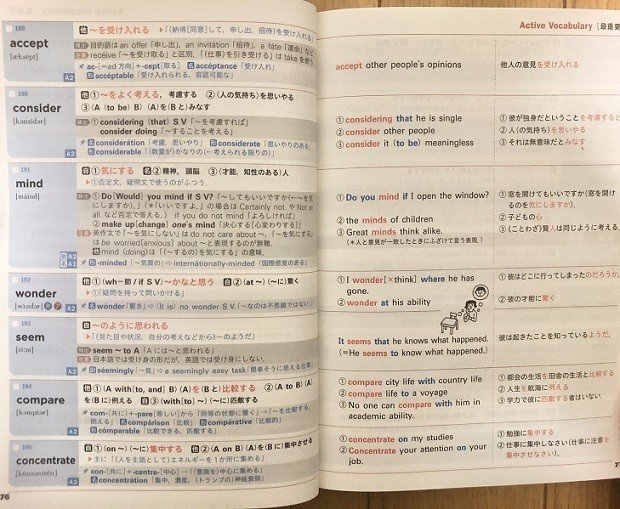 189
accept
[æksépt]
A2
他 ～を受け入れる
▶「(納得[同意]して、申し出、招待)を受け入れる」
目的語は an offer「申し出」, an invitation「招待」, a fate「運命」など。
receive「～を受け取る」と区別。「(仕事)を引き受ける」は take を使う。
ac-[=ad 方向]+-cept[取る] 名 accéptance「受け入れ」
形 accéptable「受け入れられる、容認可能な」
190
consider
[kənsídər]
A2
他 ①～をよく考える, 考慮する ②(人の気持ち)を思いやる
③(A (to be) B) (AをBと)みなす
① considering (that) S V「～を考慮すれば」
consider doing「～することを考える」
名 considerátion「考慮, 思いやり」 形 consíderate「思いやりのある」
形 consíderable「(数量が)かなりの(←考えられる限りの)」
191
mind
[maind]
A2
A2
他 ①気にする 名 ②精神, 頭脳 ③(才能, 知性のある)人
▶①否定文, 疑問文で使うのがふつう。
① Do[Would] you mind if S V?「～してもいいですか(←～を気
にしますか)。」(*「いいですよ。」の場合は Certainly not. や Not at
all. など否定で答える。) if you do not mind「よろしければ」
② make up[change] one's mind「決心する[心変わりする]」
英作文で「～を気にしない」は do not care about ～、「～を気にする」
は be worried[anxious] about ～と表現するのが無難。
mind (doing)は「(～するの)を気にする」の意味。
-minded「～気質の」⇨ internationally-minded「国際感覚のある」
192
wonder
[wʌ́ndər]
A2
他 ①(wh-節 / if S V)～かなと思う 自 ②(at ～)(～に)驚く
▶①「疑問を持って問いかける」
名 wónder「驚き」⇨ (It is) no wonder S V「～なのは不思議ではない」
193
seem
[si:m]
A2
自 ～のように思われる
▶「(見た目や状況, 自分の考えなどから)～のようだ」
seem ～ to A「Aには～と思われる」
日本語では受け身の形だが、英語では受け身にしない。
副 séemingly「一見」⇨ a seemingly easy task「簡単そうに思える仕事」
194
compare
[kəmpéər]
A2
他 ①(A with[to, and] B) (AをBと)比較する ②(A to B) (Aを
Bに)例える 自 ③(with[to] ～)(～に)匹敵する
com-[共に]+-pare[等しい]から「同等の状態に置く」→「～を比較する,
例える」 名 compárison「比較」 形 compárative「比較的な」
形 cómparable「比較できる, 匹敵する」
195
concentrate
[kɑ́nsəntrèit]
A2
自 ①(on ～)(～に)集中する 他 ②(A on B) (AをBに)集中させる
▶主に「(人を主語として)エネルギーを1か所に集める」
con-[共に]+-centra-[中心]→「(意識を)中心に集める」
名 concentrátion「集中, 濃度, (トランプの)神経衰弱」
76
Active Vocabulary [最重要
accept other people's opinions
他人の意見を受け入れる
① considering that he is single
② consider other people
③ consider it (to be) meaningless
①彼が独身だということを考慮すると
②人(の気持ち)を思いやる
③それは無意味だとみなす
① Do you mind if I open the window?
② the minds of children
③ Great minds think alike.
(*人と意見が一致したときにふざけて言う表現。)
①窓を開けてもいいですか(窓を開け
るのを気にしますか)。
②子どもの心
③(ことわざ)賢人は同じように考える。
① I wonder[×think] where he has
gone.
② wonder at his ability
①彼はどこに行ってしまったのだろうか。
②彼の才能に驚く
It seems that he knows what happened.
(=He seems to know what happened.)
彼は起きたことを知っているようだ。
① compare city life with country life
② compare life to a voyage
③ No one can compare with him in
academic ability.
①都会の生活を田舎の生活と比較する
②人生を航海に例える
③学力で彼に匹敵する者はいない。
① concentrate on my studies
② Concentrate your attention on your
job.
①勉強に集中する
②仕事に集中しなさい(仕事に注意を
集中させなさい)。